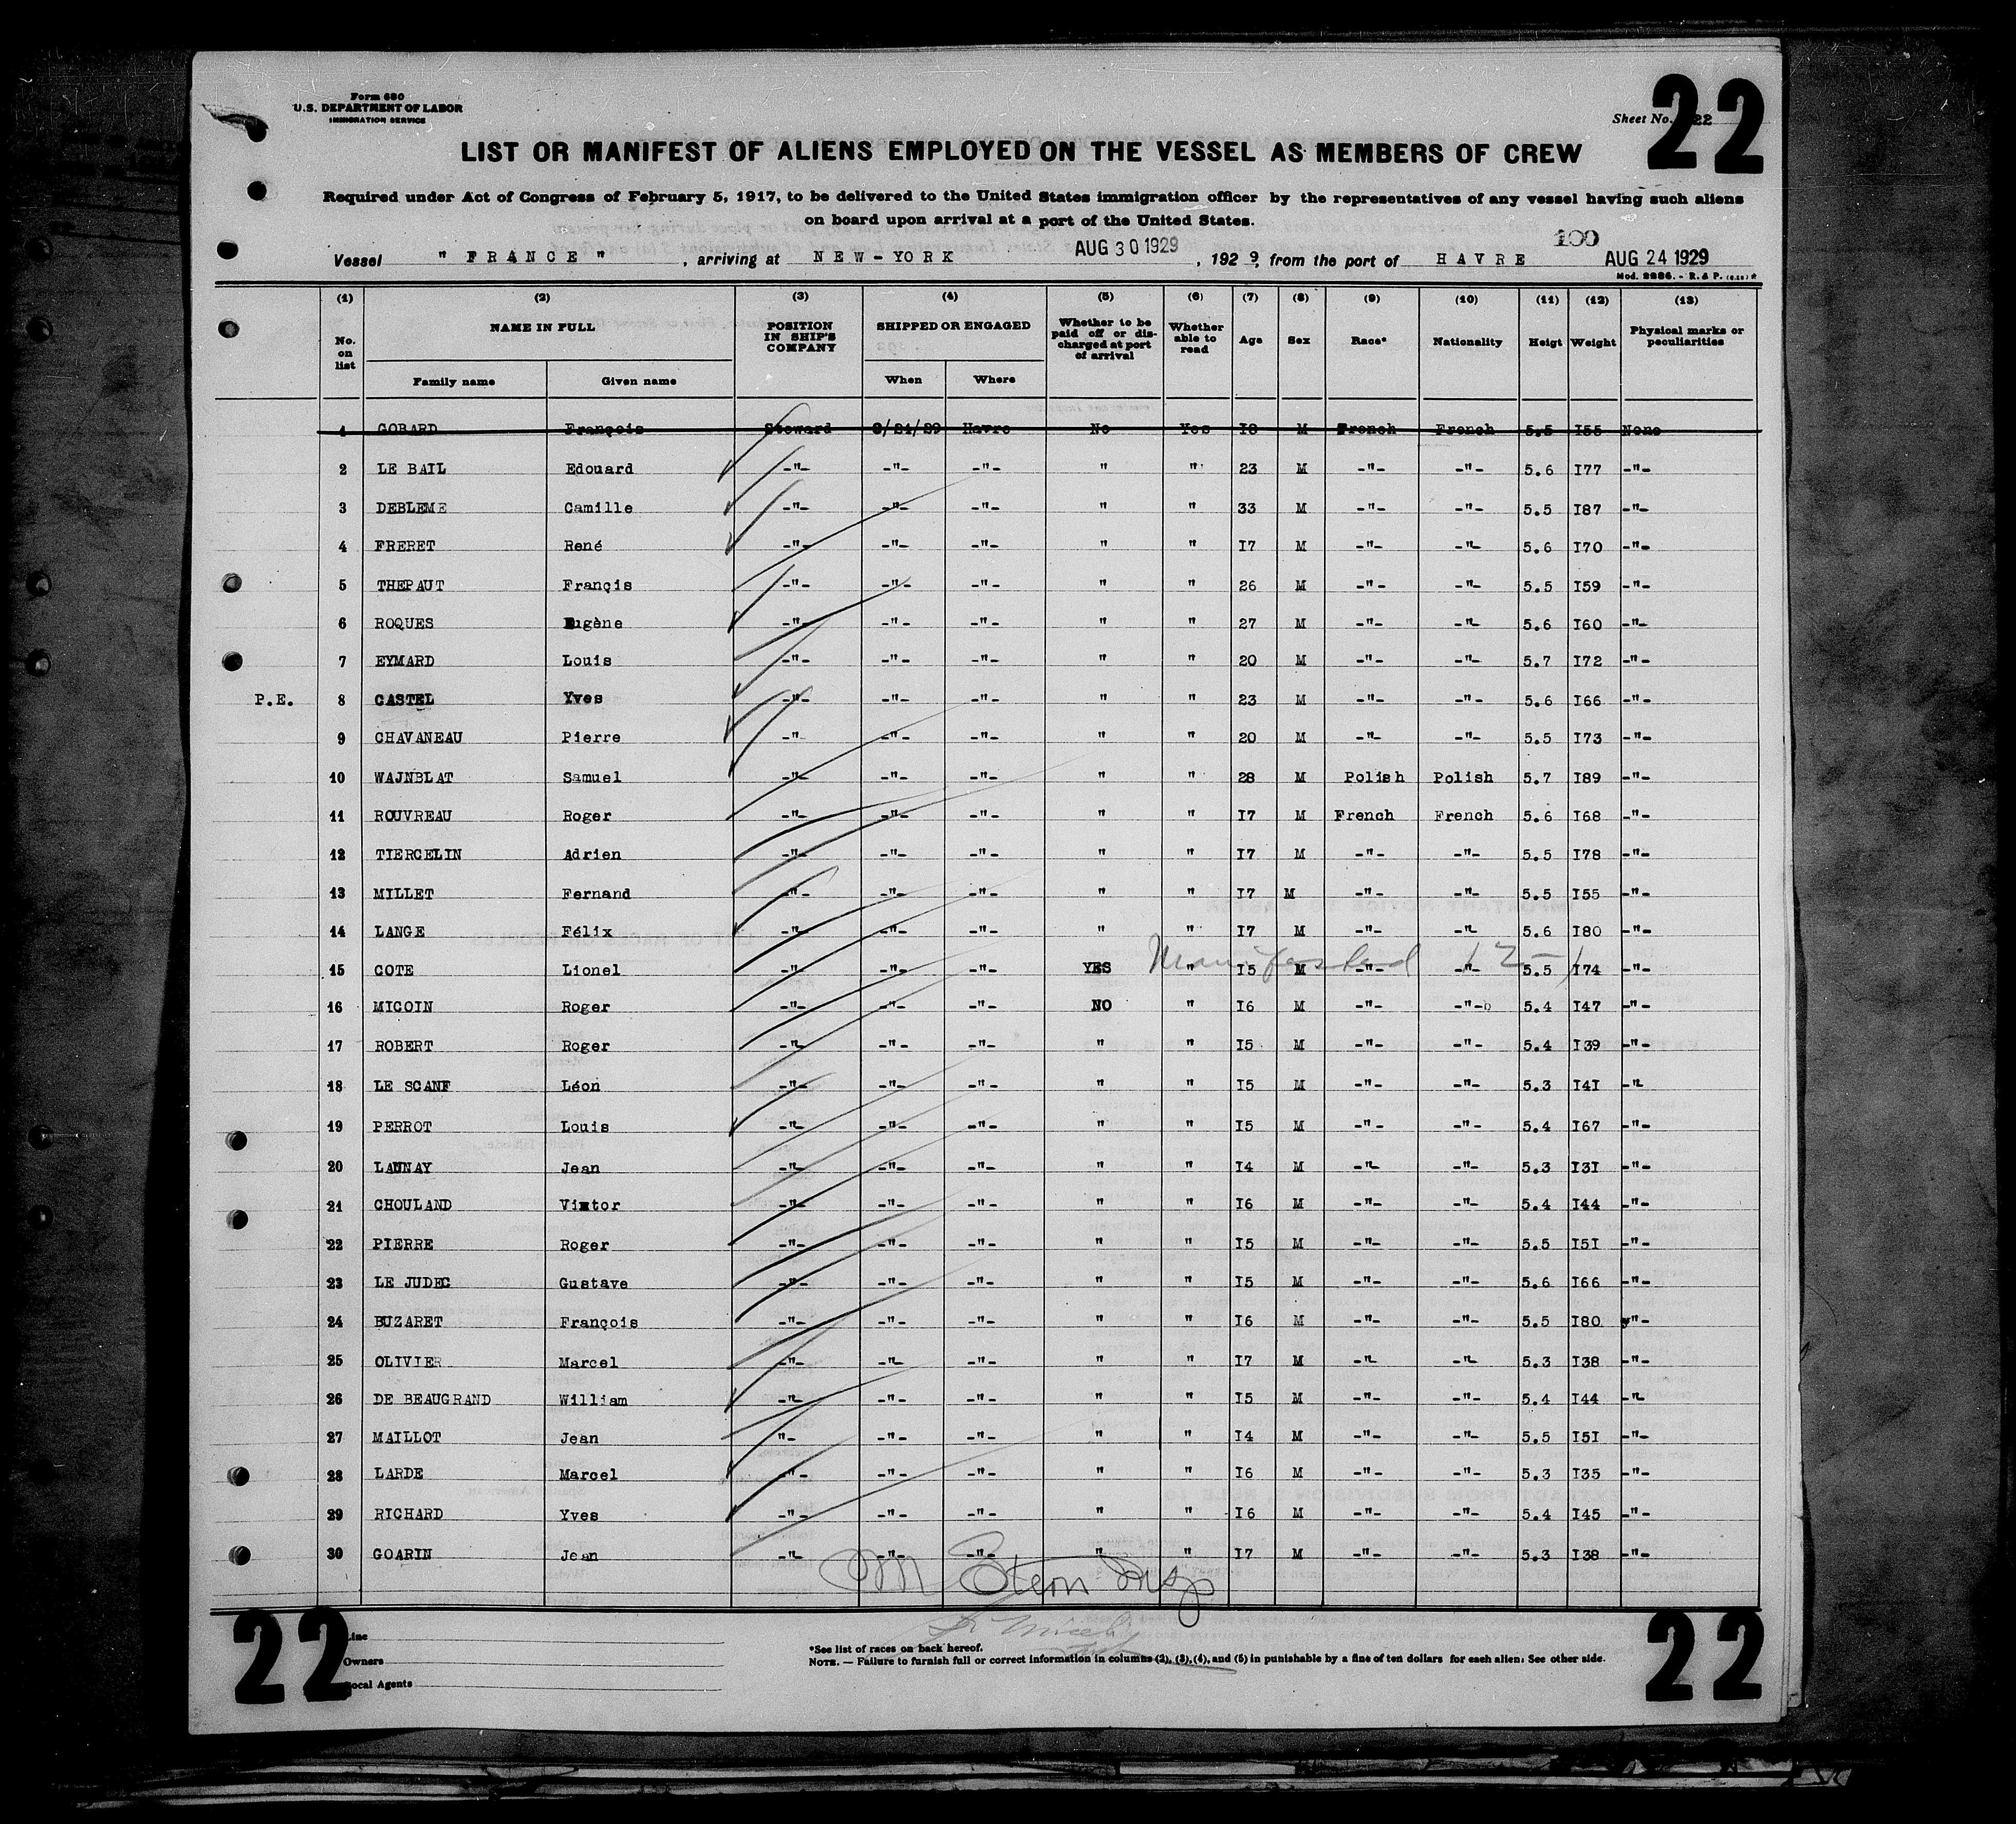 Form 680
U.S. DEPARTMENT OF LABOR
IMMIGRATION SERVICE
22
Sheet No. 22
LIST OR MANIFEST OF ALIENS EMPLOYED ON THE VESSEL AS MEMBERS OF CREW
Required under Act of Congress of February 5, 1917, to be delivered to the United States immigration officer by the representatives of any vessel having such aliens
on board upon arrival at a port of the United States.
100
Vessel " FRANCE " , arriving at NEW-YORK AUG 30 1929 , 1929, from the port of HAVRE AUG 24 1929
(1) (2) (3) (4) (5) (6) (7) (8) (9) (10) (11) (12) (13)
No. on list NAME IN FULL POSITION IN SHIP'S COMPANY SHIPPED OR ENGAGED Whether to be paid off or discharged at port of arrival Whether able to read Age Sex Race* Nationality Heigt Weight Physical marks or peculiarities
Family name Given name When Where
1 GOBARD François Steward 8/24/29 Havre No Yes I8 M French French 5.5 I55 None
2 LE BAIL Edouard -"- -"- -"- " " 23 M -"- -"- 5.6 I77 -"-
3 DEBLEME Camille -"- -"- -"- " " 33 M -"- -"- 5.5 I87 -"-
4 FRERET René -"- -"- -"- " " I7 M -"- -"- 5.6 I70 -"-
5 THEPAUT Françis -"- -"- -"- " " 26 M -"- -"- 5.5 I59 -"-
6 ROQUES Eugène -"- -"- -"- " " 27 M -"- -"- 5.6 I60 -"-
7 EYMARD Louis -"- -"- -"- " " 20 M -"- -"- 5.7 I72 -"-
P.E. 8 CASTEL Yves -"- -"- -"- " " 23 M -"- -"- 5.6 I66 -"-
9 CHAVANEAU Pierre -" -"- -"- " " 20 M -"- -"- 5.5 I73 -"-
10 WAJNBLAT Samuel -"- -"- -"- " " 28 M Polish Polish 5.7 I89 -"-
11 ROUVREAU Roger -"- -"- -"- " " I7 M French French 5.6 I68 -"-
12 TIERCELIN Adrien -"- -"- -"- " " I7 M -"- -"- 5.5 I78 -"-
13 MILLET Fernand -"- -"- -"- " " I7 M -"- -"- 5.5 I55 -"-
14 LANGE Félix -"- -"- -"- " " I7 M -"- -"- 5.6 I80 -"-
15 COTE Lionel -"- -"- -"- YES " I5 M -"- -"- 5.5 I74 -"-
Manifested
16 MICOIN Roger -"- -"- -"- NO " I6 M -"- -"- 5.4 I47 -"-
17 ROBERT Roger -"- -"- -"- " " I5 M -"- -"- 5.4 I39 -"-
18 LE SCANF Léon -"- -"- -"- " " I5 M -"- -"- 5.3 I4I -"-
19 PERROT Louis -"- -"- -"- " " I5 M -"- -"- 5.4 I67 -"-
20 LAUNAY Jean -"- -"- -"- " " I4 M -"- -"- 5.3 I3I -"-
21 CHOULAND Vimtor -"- -"- -"- " " I6 M -"- -"- 5.4 I44 -"-
22 PIERRE Roger -"- -"- -"- " " I5 M -"- -"- 5.5 I5I -"-
23 LE JUDEC Gustave -"- -"- -"- " " I5 M -"- -"- 5.6 I66 -"-
24 BUZARET François -"- -"- -"- " " I6 M -"- -"- 5.5 I80 -"-
25 OLIVIER Marcel -"- -"- -"- " " I7 M -"- -"- 5.3 I38 -"-
26 DE BEAUGRAND William -"- -"- -"- " " I5 M -"- -"- 5.4 I44 -"-
27 MAILLOT Jean "- -"- -"- " " I4 M -"- -"- 5.5 I5I -"-
28 LARDE Marcel -"- -"- -"- " " I6 M -"- -"- 5.3 I35 -"-
29 RICHARD Yves -"- -"- -"- " " I6 M -"- -"- 5.4 I45 -"-
30 GOARIN Jean -"- -"- -"- " " I7 M -"- -"- 5.3 I38 -"-
M Stern Insp
22 22
Line
Owners
Local Agents
*See list of races on back hereof.
NOTE. — Failure to furnish full or correct information in columns (2), (3), (4), and (5) in punishable by a fine of ten dollars for each alien: See other side.